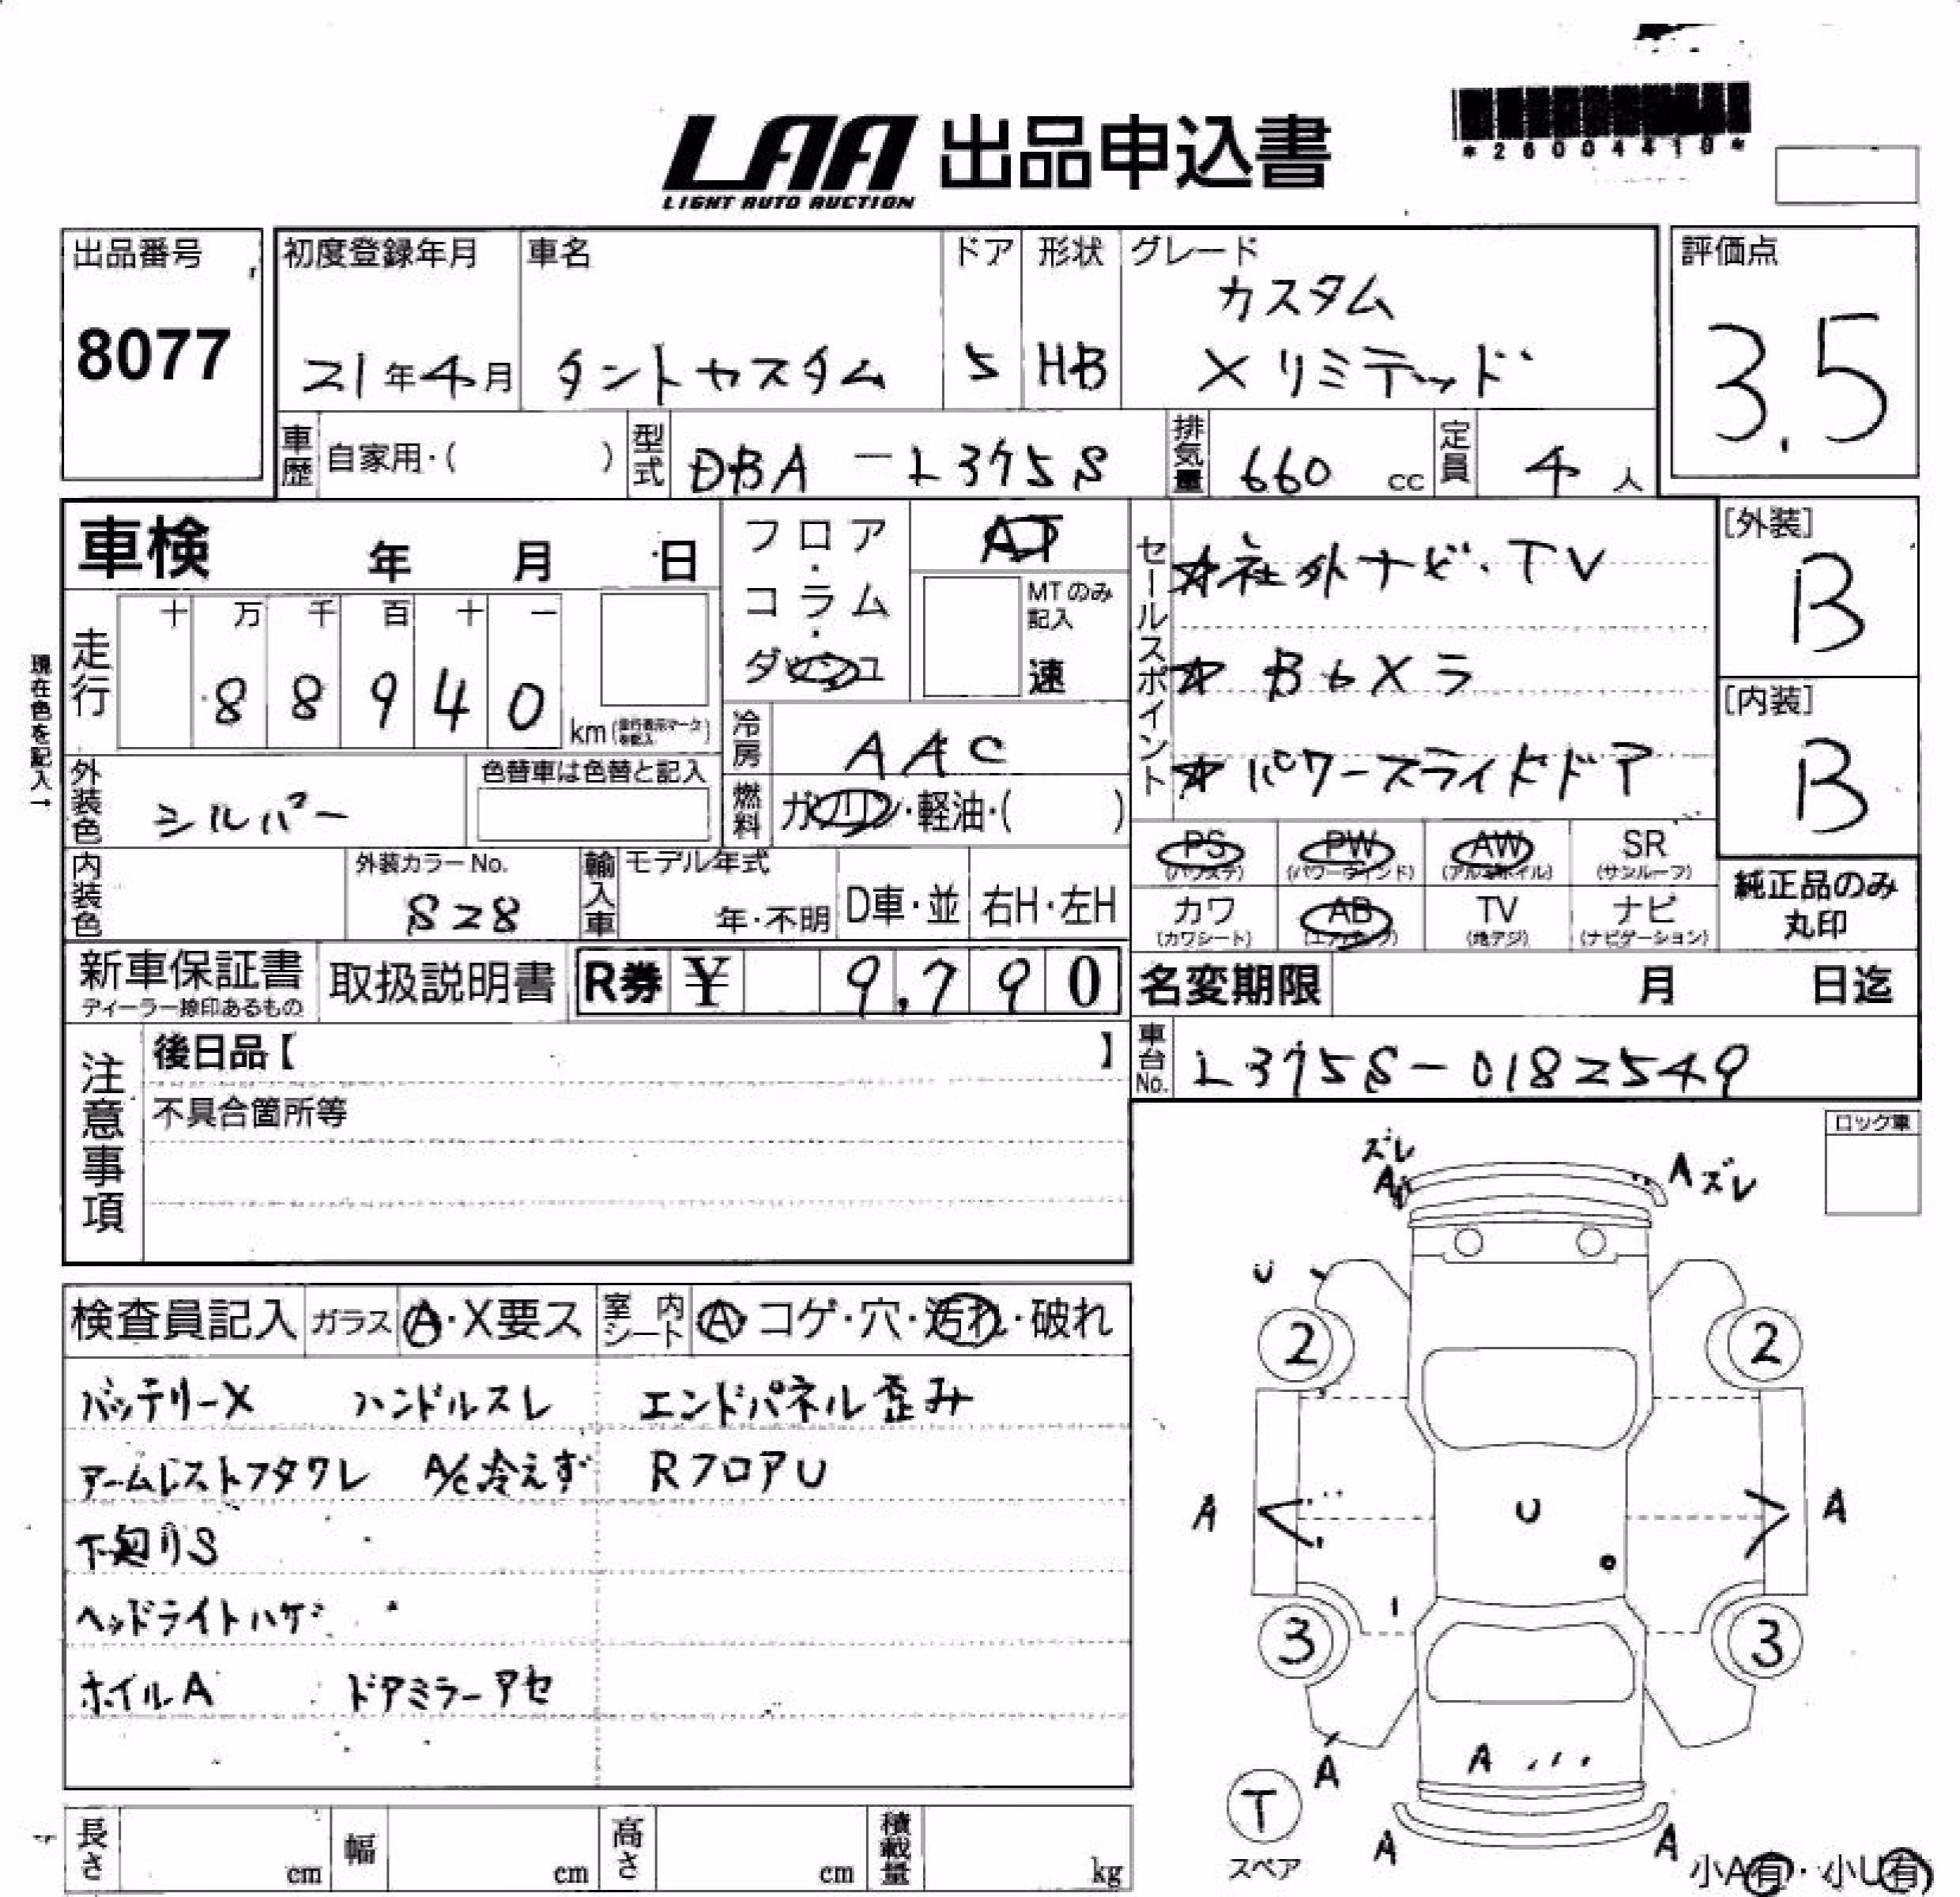 LAA 出品申込書
LIGHT AUTO AUCTION
*26004419*
出品番号
8077
初度登録年月
21年4月
車名
タントカスタム
ドア
5
形状
HB
グレード
カスタム
Xリミテッド
評価点
3.5
車歴
自家用・( )
型式
DBA-L375S
排気量
660 cc
定員
4 人
車検 年 月 日
フロア・コラム・ダッシュ
AT
MTのみ記入
速
セールスポイント
☆社外ナビ・TV
☆Bカメラ
☆パワースライドドア
[外装]
B
[内装]
B
現在色を記入→
走行
十 万 千 百 十 一
88940
km(走行表示マークを記入)
冷房
AAC
燃料
ガソリン・軽油・( )
外装色
シルバー
色替車は色替と記入
内装色
外装カラーNo.
S28
輸入車
モデル年式
年・不明
D車・並
右H・左H
PS (パワステ)
PW (パワーウインド)
AW (アルミホイル)
SR (サンルーフ)
カワ (カワシート)
AB (エアバッグ)
TV (地デジ)
ナビ (ナビゲーション)
純正品のみ丸印
新車保証書
ディーラー捺印あるもの
取扱説明書
R券 ¥ 9,790
名変期限 月 日迄
注意事項
後日品【 】
不具合箇所等
車台No.
L375S-0182549
ロック車
ズレ
A
A ズレ
U
2
2
A
U
A
3
3
A
A
A
A
T
スペア
小A有・小U有
検査員記入
ガラス
A・X要ス
室内シート
A コゲ・穴・汚れ・破れ
バッテリーX ハンドルスレ エンドパネル歪み
アームレストフタワレ A/C冷えず RフロアU
下廻りS
ヘッドライトハゲ
ホイルA ドアミラーアセ
長さ cm
幅 cm
高さ cm
積載量 kg